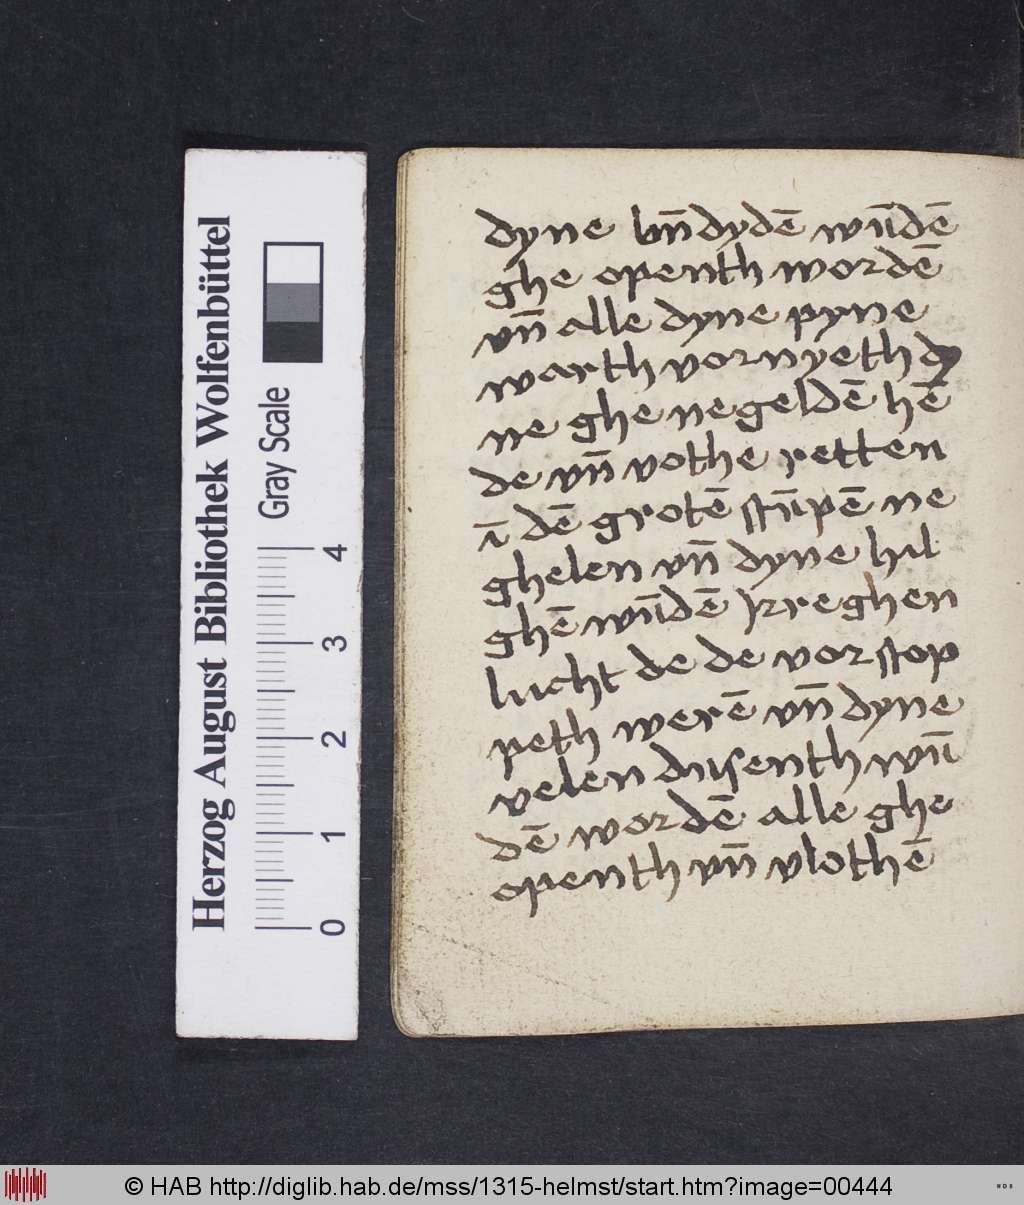 Herzog August Bibliothek Wolfenbüttel
Gray Scale
0 1 2 3 4
dyne bn̄dydē wn̄dē
ghe openth wordē
vn̄ alle dyne pyne
warth vornyeth dy
ne ghe negeldē hē
de vn̄ vothe retten
ī dē grotē stūpē ne
ghelen vn̄ dyne hil
ghē wūdē kreghen
lucht de de vorstop
peth werē vn̄ dyne
velen dusenth wū
dē wordē alle ghe
openth vn̄ vlothē
© HAB http://diglib.hab.de/mss/1315-helmst/start.htm?image=00444
WDB